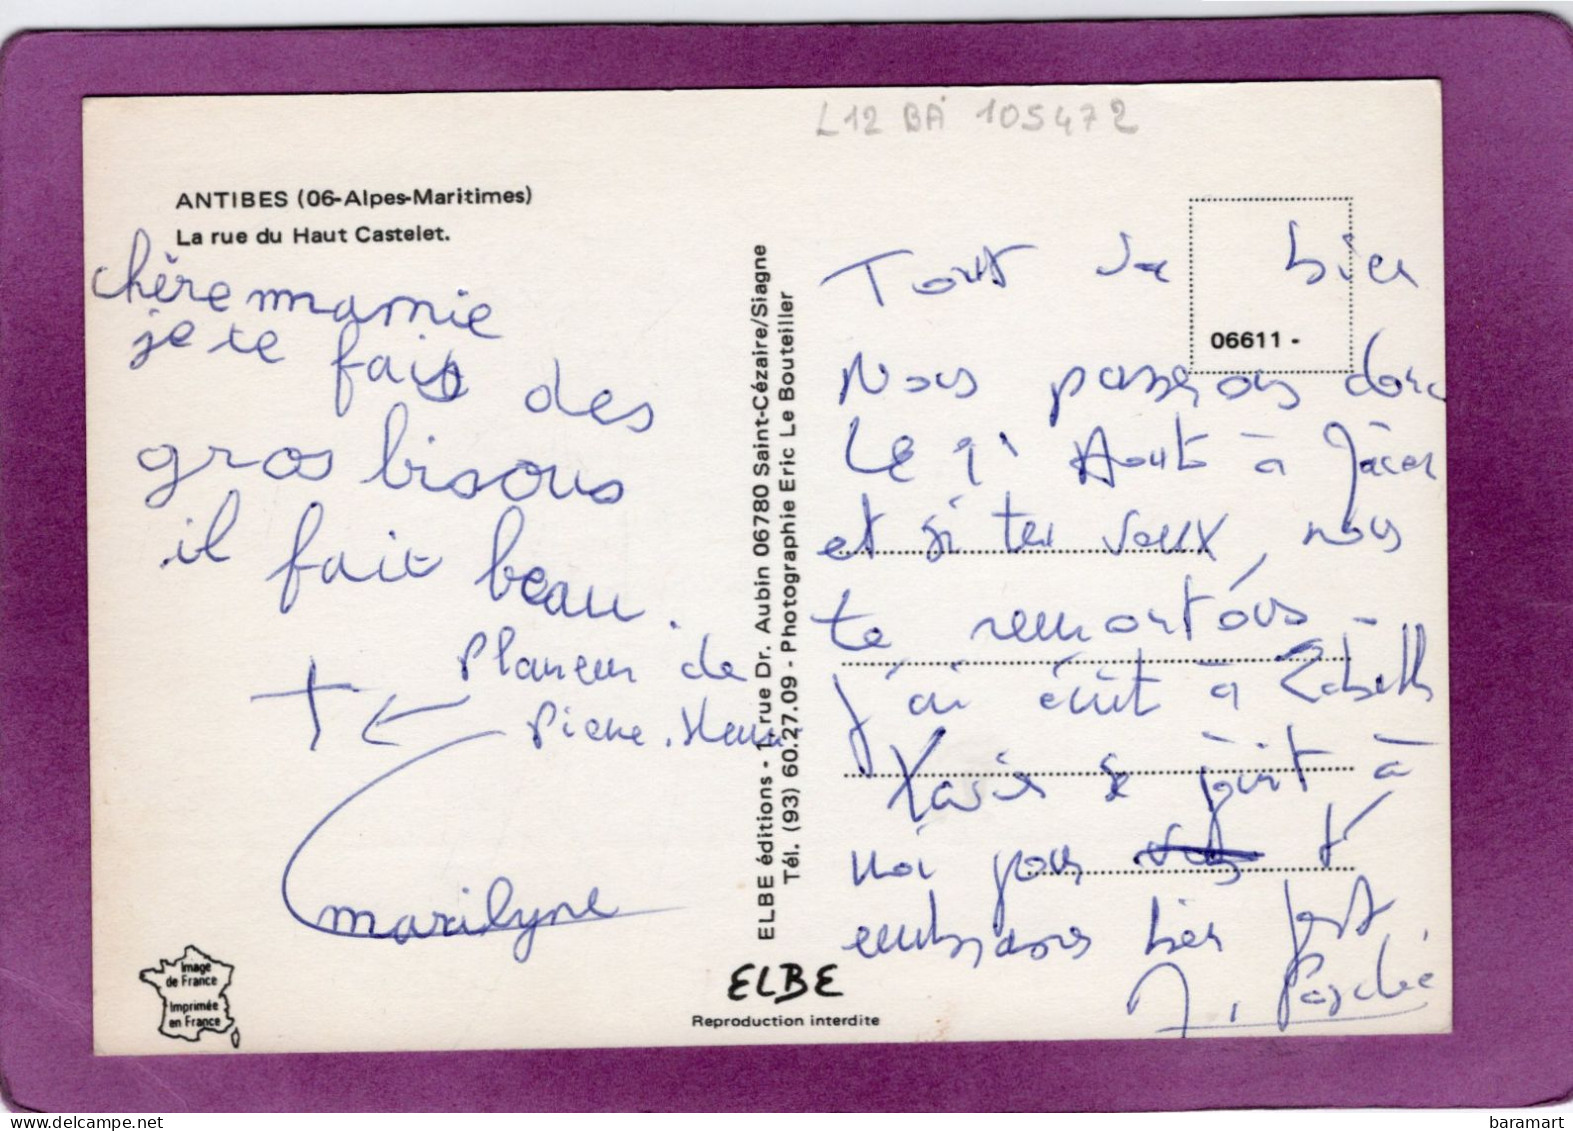 L12 BA 105472
ANTIBES (06-Alpes-Maritimes)
La rue du Haut Castelet.
chère mamie
je te fais des
gros bisous
il fait beau.
Planeur de
Pierre. Henri
marilyne
ELBE éditions - 1, rue Dr. Aubin 06780 Saint-Cézaire/Siagne
Tél. (93) 60.27.09 - Photographie Eric Le Bouteiller
06611 -
Tout va bien
Nous passerons donc
Le 1' Août à
et si tu veux, nous
te remontons -
j'ai écrit à
Xavier se joint à
moi pour vous t'
embrasser bien fort
Image
de France
Imprimée
en France
ELBE
Reproduction interdite
baramart